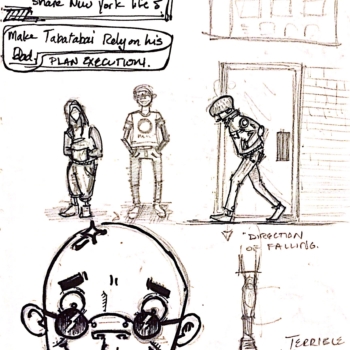 Share New York life's.
Make Tabatabai Rely on his
Dad. PLAN EXECUTION.
DIRECTION
OF FALLING.
TERRIBLE